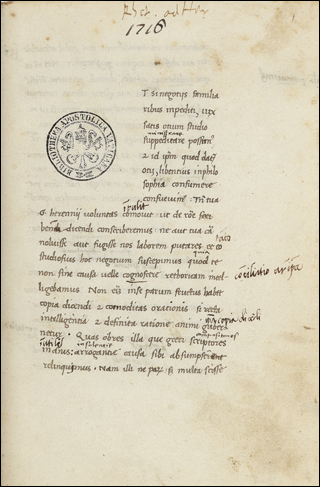 Rhet. ad Her.
1716
BIBLIOTHECA APOSTOLICA VATICANA
T si negotijs familia
ribus inpediti, uix
satis otium studio
suppeditare possum9
& id ipm quod dat
otij, libentius in philo
sophia consumere
consueuim9 Tn tua
C herennij voluntas comouit ut de rõe
dicendi conscriberemus ne aut tua cã
noluisse aut fugisse nos laborem putares et
studiosius hoc negotium suscepimus quod te
non sine causa uelle cognoscere rethoricam
ligebamus Non in se parum fructus habet
copia dicendi & comoditas orationis si recta
intelligentia & definita ratione animi
netur. Quas obres illa que greci scriptores
inanis arrogantie causa sibi
relinquimus. Nam illi ne par si multa scisse